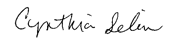 Cynthia Selin